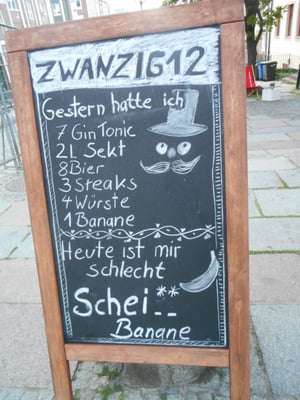 ZWANZIG12
Gestern hatte ich
7 Gin Tonic
2L Sekt
8 Bier
3 Steaks
4 Würste
1 Banane
Heute ist mir
schlecht
Schei_ _**
Banane